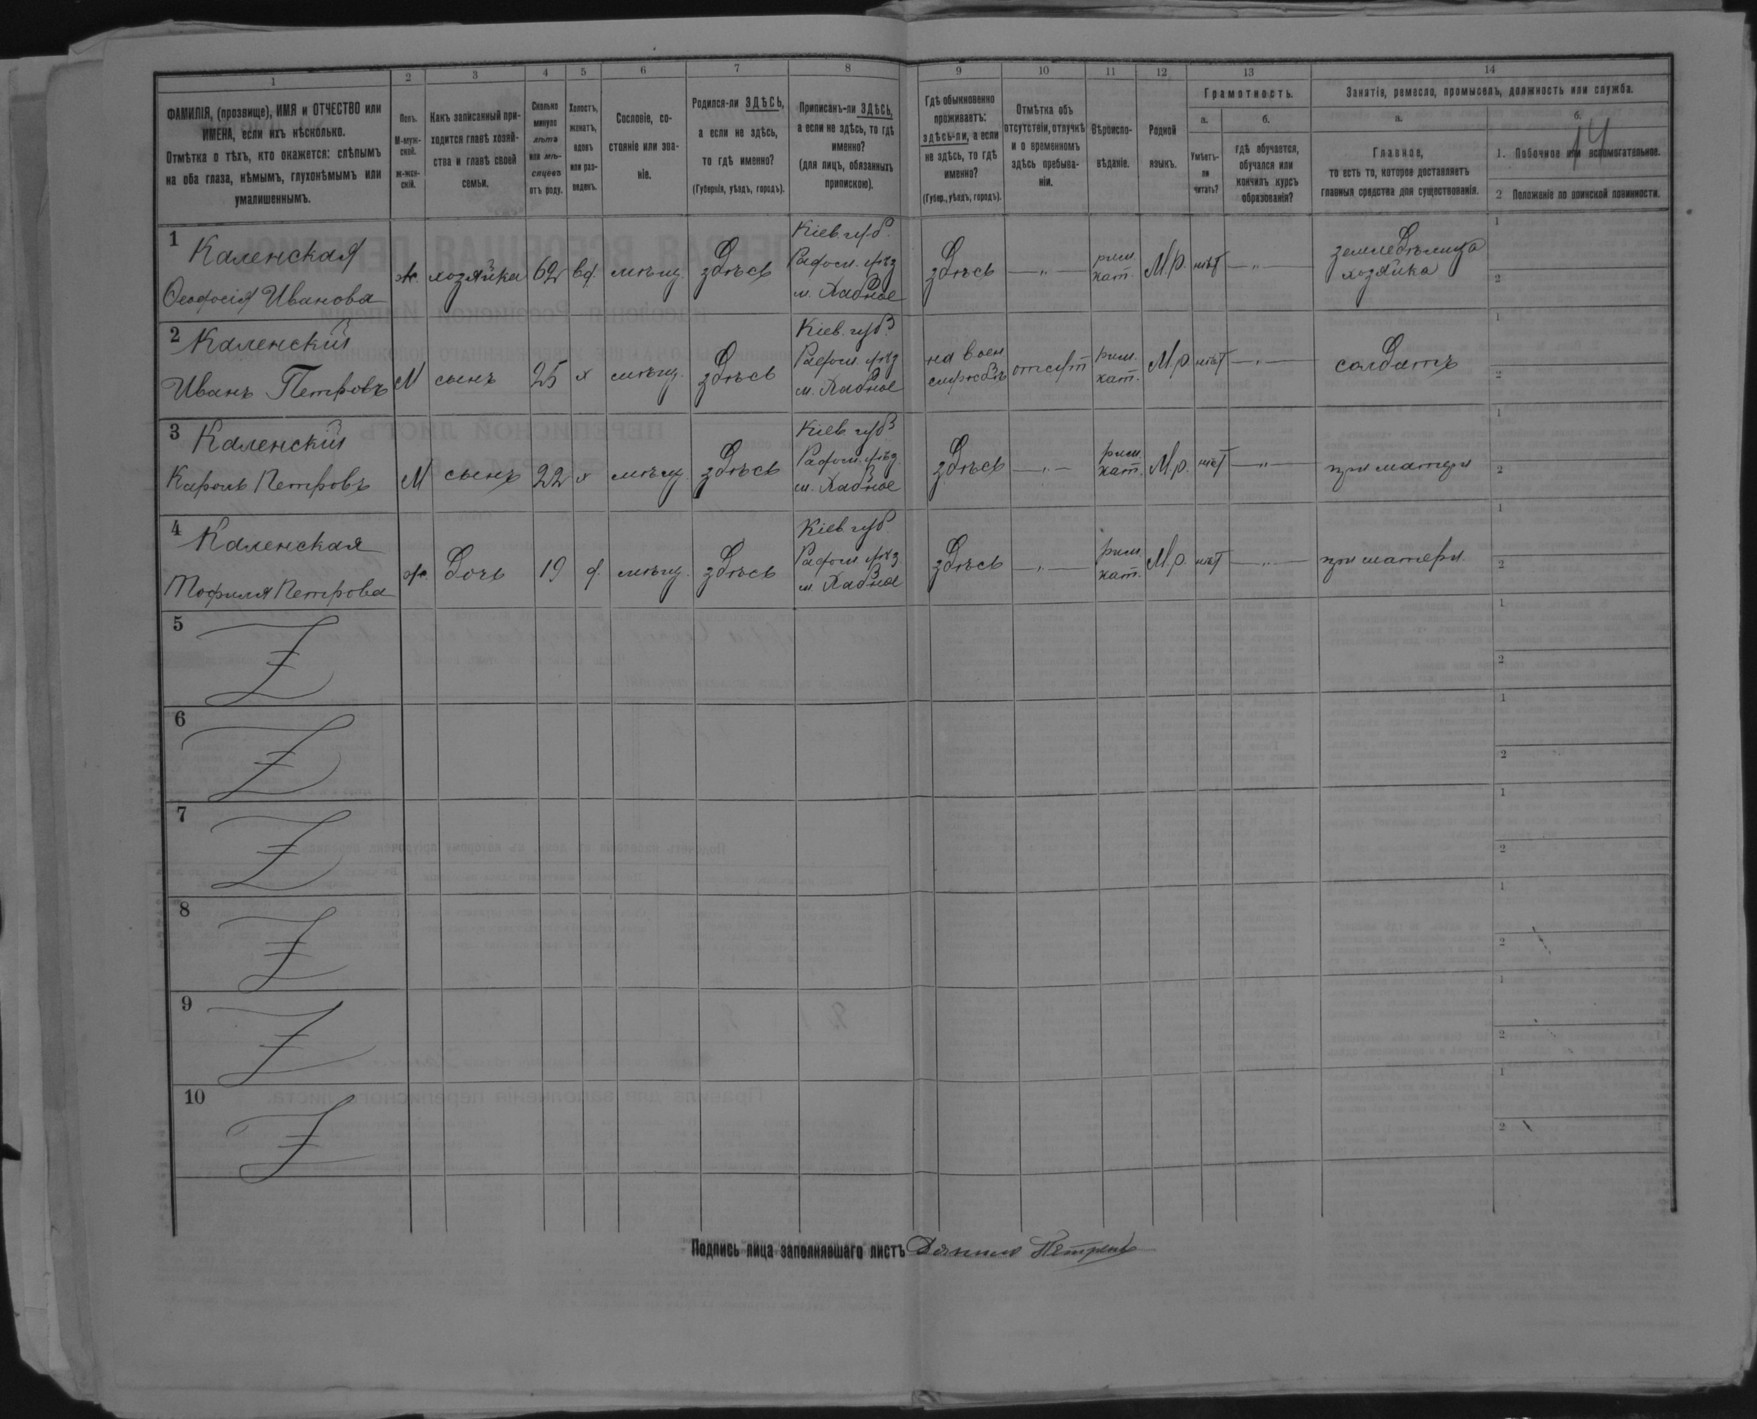 1 2 3 4 5 6 7 8 9 10 11 12 13 14
ФАМИЛІЯ, (прозвище), ИМЯ и ОТЧЕСТВО или
ИМЕНА, если ихъ нѣсколько.
Отмѣтка о тѣхъ, кто окажется: слѣпымъ
на оба глаза, нѣмымъ, глухонѣмымъ или
умалишеннымъ.
Полъ.
М-муж-
ской.
ж-жен-
скій.
Какъ записанный при-
ходится главѣ хозяй-
ства и главѣ своей
семьи.
Сколько
минуло
лѣтъ
или мѣ-
сяцевъ
отъ роду.
Холостъ,
женатъ,
вдовъ
или раз-
веденъ.
Сословіе, со-
стояніе или зва-
ніе.
Родился-ли ЗДѢСЬ,
а если не здѣсь,
то гдѣ именно?
(Губернія, уѣздъ, городъ).
Приписанъ-ли ЗДѢСЬ,
а если не здѣсь, то гдѣ
именно?
(для лицъ, обязанныхъ
припискою).
Гдѣ обыкновенно
проживаетъ:
здѣсь-ли, а если
не здѣсь, то гдѣ
именно?
(Губер., уѣздъ, городъ).
Отмѣтка объ
отсутствіи, отлучкѣ
и о временномъ
здѣсь пребыва-
ніи.
Вѣроиспо-
вѣданіе.
Родной
языкъ.
Грамотность.
а.
Умѣетъ-
ли
читать?
б.
гдѣ обучается,
обучался или
кончилъ курсъ
образованія?
Занятія, ремесло, промыселъ, должность или служба.
а.
Главное,
то есть то, которое доставляетъ
главныя средства для существованія.
б.
14
1. Побочное или вспомогательное.
2 Положеніе по воинской повинности.
1 Каленская
Ѳеодосія Иванова
ж хозяйка 62 вд. мѣщ. здѣсь
Кіев. губ.
Радом. уѣзд
м. Хабное
здѣсь —„—
рим.
кат.
М.р. нѣт —„—
земледѣлица
хозяйка
1
2
2 Каленскій
Иванъ Петровъ
М сынъ 25 х мѣщ. здѣсь
Кіев. губ
Радом. уѣзд
м. Хабное
на воен
службѣ
отсут
рим.
кат.
М.р. нѣт —„—
солдатъ
1
2
3 Каленскій
Кароль Петровъ
М сынъ 22 х мѣщ. здѣсь
Кіев. губ
Радом. уѣзд.
м. Хабное
здѣсь —„—
рим.
кат.
М.р. нѣт —„—
при матери
1
2
4 Каленская
Тофиля Петрова
ж. дочь 19 д. мѣщ. здѣсь
Кіев. губ.
Радом. уѣзд.
м. Хабное
здѣсь —„—
рим.
кат.
М.р. нѣт —„—
при матери.
1
2
5
1
2
6
1
2
7
1
2
8
1
2
9
1
2
10
1
2
Подпись лица заполнявшаго листъ